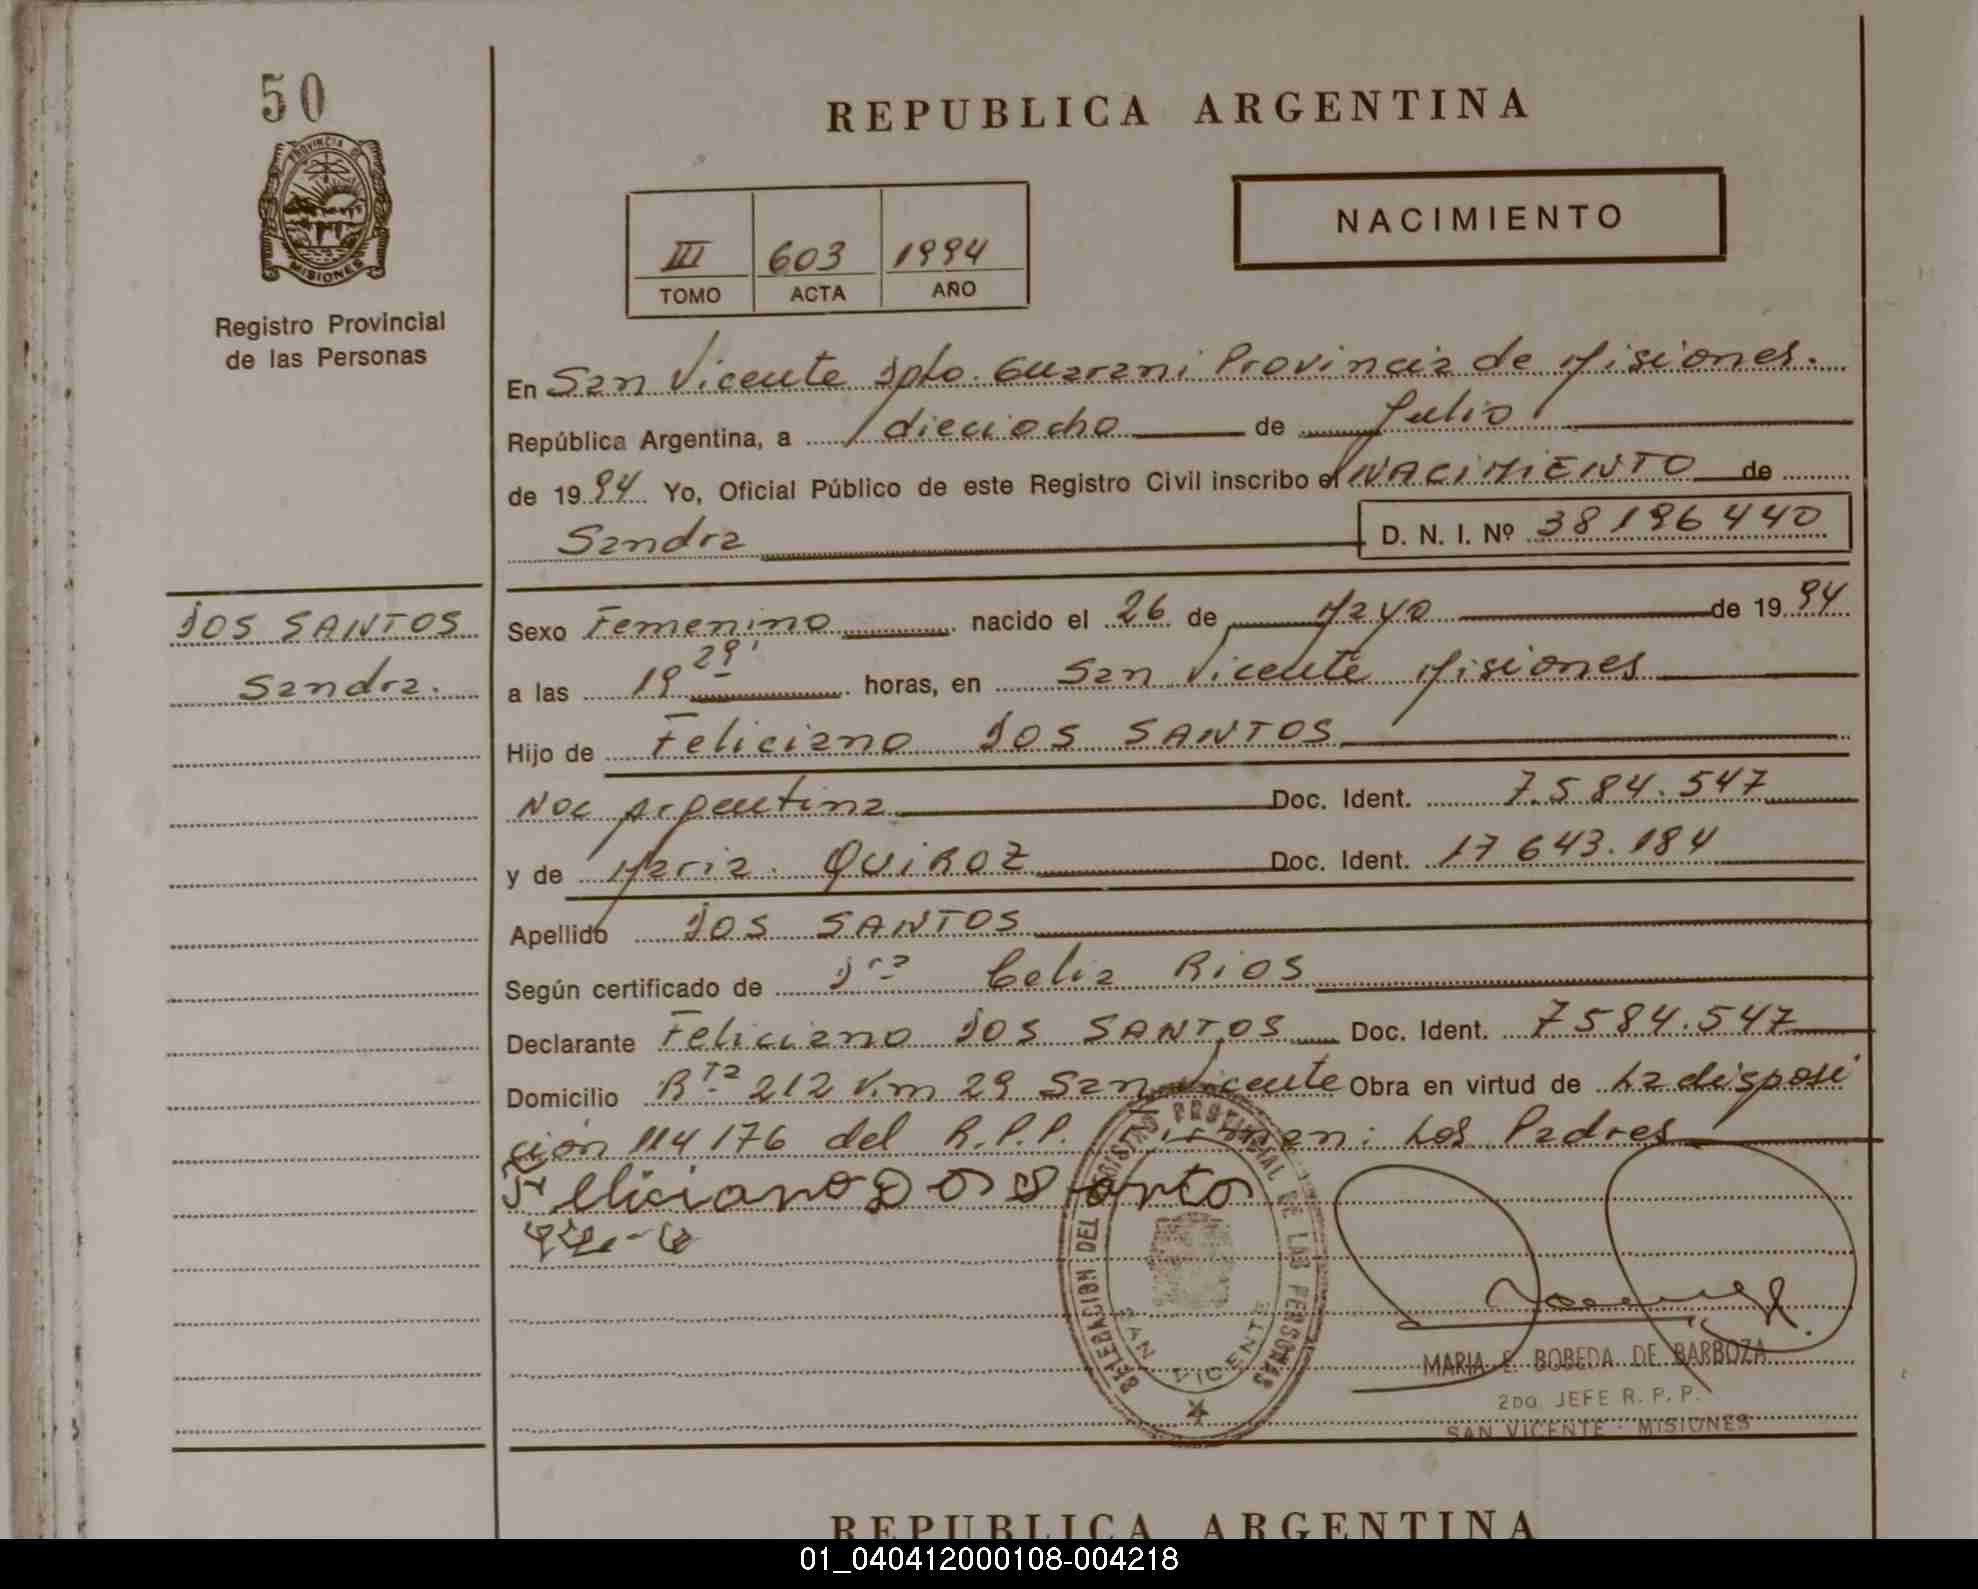 50
PROVINCIA DE
MISIONES
Registro Provincial
de las Personas
REPUBLICA ARGENTINA
NACIMIENTO
III 603 1994
TOMO ACTA AÑO
En San Vicente Dpto. Guarani Provincia de Misiones.
República Argentina, a dieciocho de Julio
de 1994 Yo, Oficial Público de este Registro Civil inscribo el NACIMIENTO de
Sandra D. N. I. Nº 38196440
DOS SANTOS
Sandra.
Sexo Femenino nacido el 26 de Mayo de 1994
a las 19 29' horas, en San Vicente Misiones
Hijo de Feliciano DOS SANTOS
Nac Argentina Doc. Ident. 7.584.547
y de Maria. QUIROZ Doc. Ident. 17643.184
Apellido DOS SANTOS
Según certificado de Dra Celia RIOS
Declarante Feliciano DOS SANTOS Doc. Ident. 7584.547
Domicilio Rta 212 Km 29 San Vicente Obra en virtud de La disposi
ción 114176 del R.P.P. Los Padres
Feliciano Dos Santos
DELEGACION DEL REGISTRO PROVINCIAL DE LAS PERSONAS
SAN VICENTE
MARIA E. BOBEDA DE BARBOZA
2DO. JEFE R. P. P.
SAN VICENTE - MISIONES
REPUBLICA ARGENTINA
01_040412000108-004218